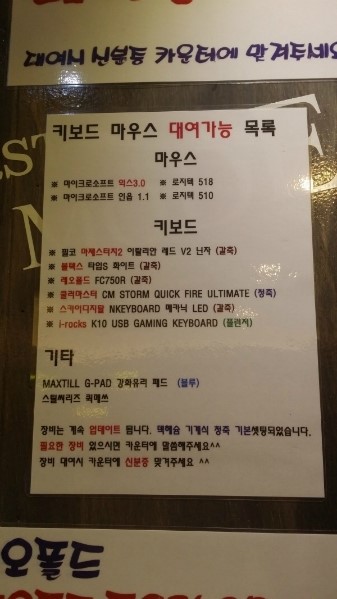 키보드 마우스 대여가능 목록
마우스
※ 마이크로소프트 익스3.0 ※ 로지텍 518
※ 마이크로소프트 인옵 1.1 ※ 로지텍 510
키보드
※ 필코 마제스터치2 이탈리안 레드 V2 닌자 (갈축)
※ 볼텍스 타입S 화이트 (갈축)
※ 레오폴드 FC750R (갈축)
※ 쿨러마스터 CM STORM QUICK FIRE ULTIMATE (청축)
※ 스카이디지탈 NKEYBOARD 메카닉 LED (갈축)
※ i-rocks K10 USB GAMING KEYBOARD (플런저)
기타
MAXTILL G-PAD 강화유리 패드 (블루)
스틸씨리즈 퀵메쓰
장비는 계속 업데이트 됩니다. 덱헤슘 기계식 청축 기본셋팅되었습니다.
필요한 장비 있으시면 카운터에 말씀해주세요^^
장비 대여시 카운터에 신분증 맞겨주세요 ^^
오폴드